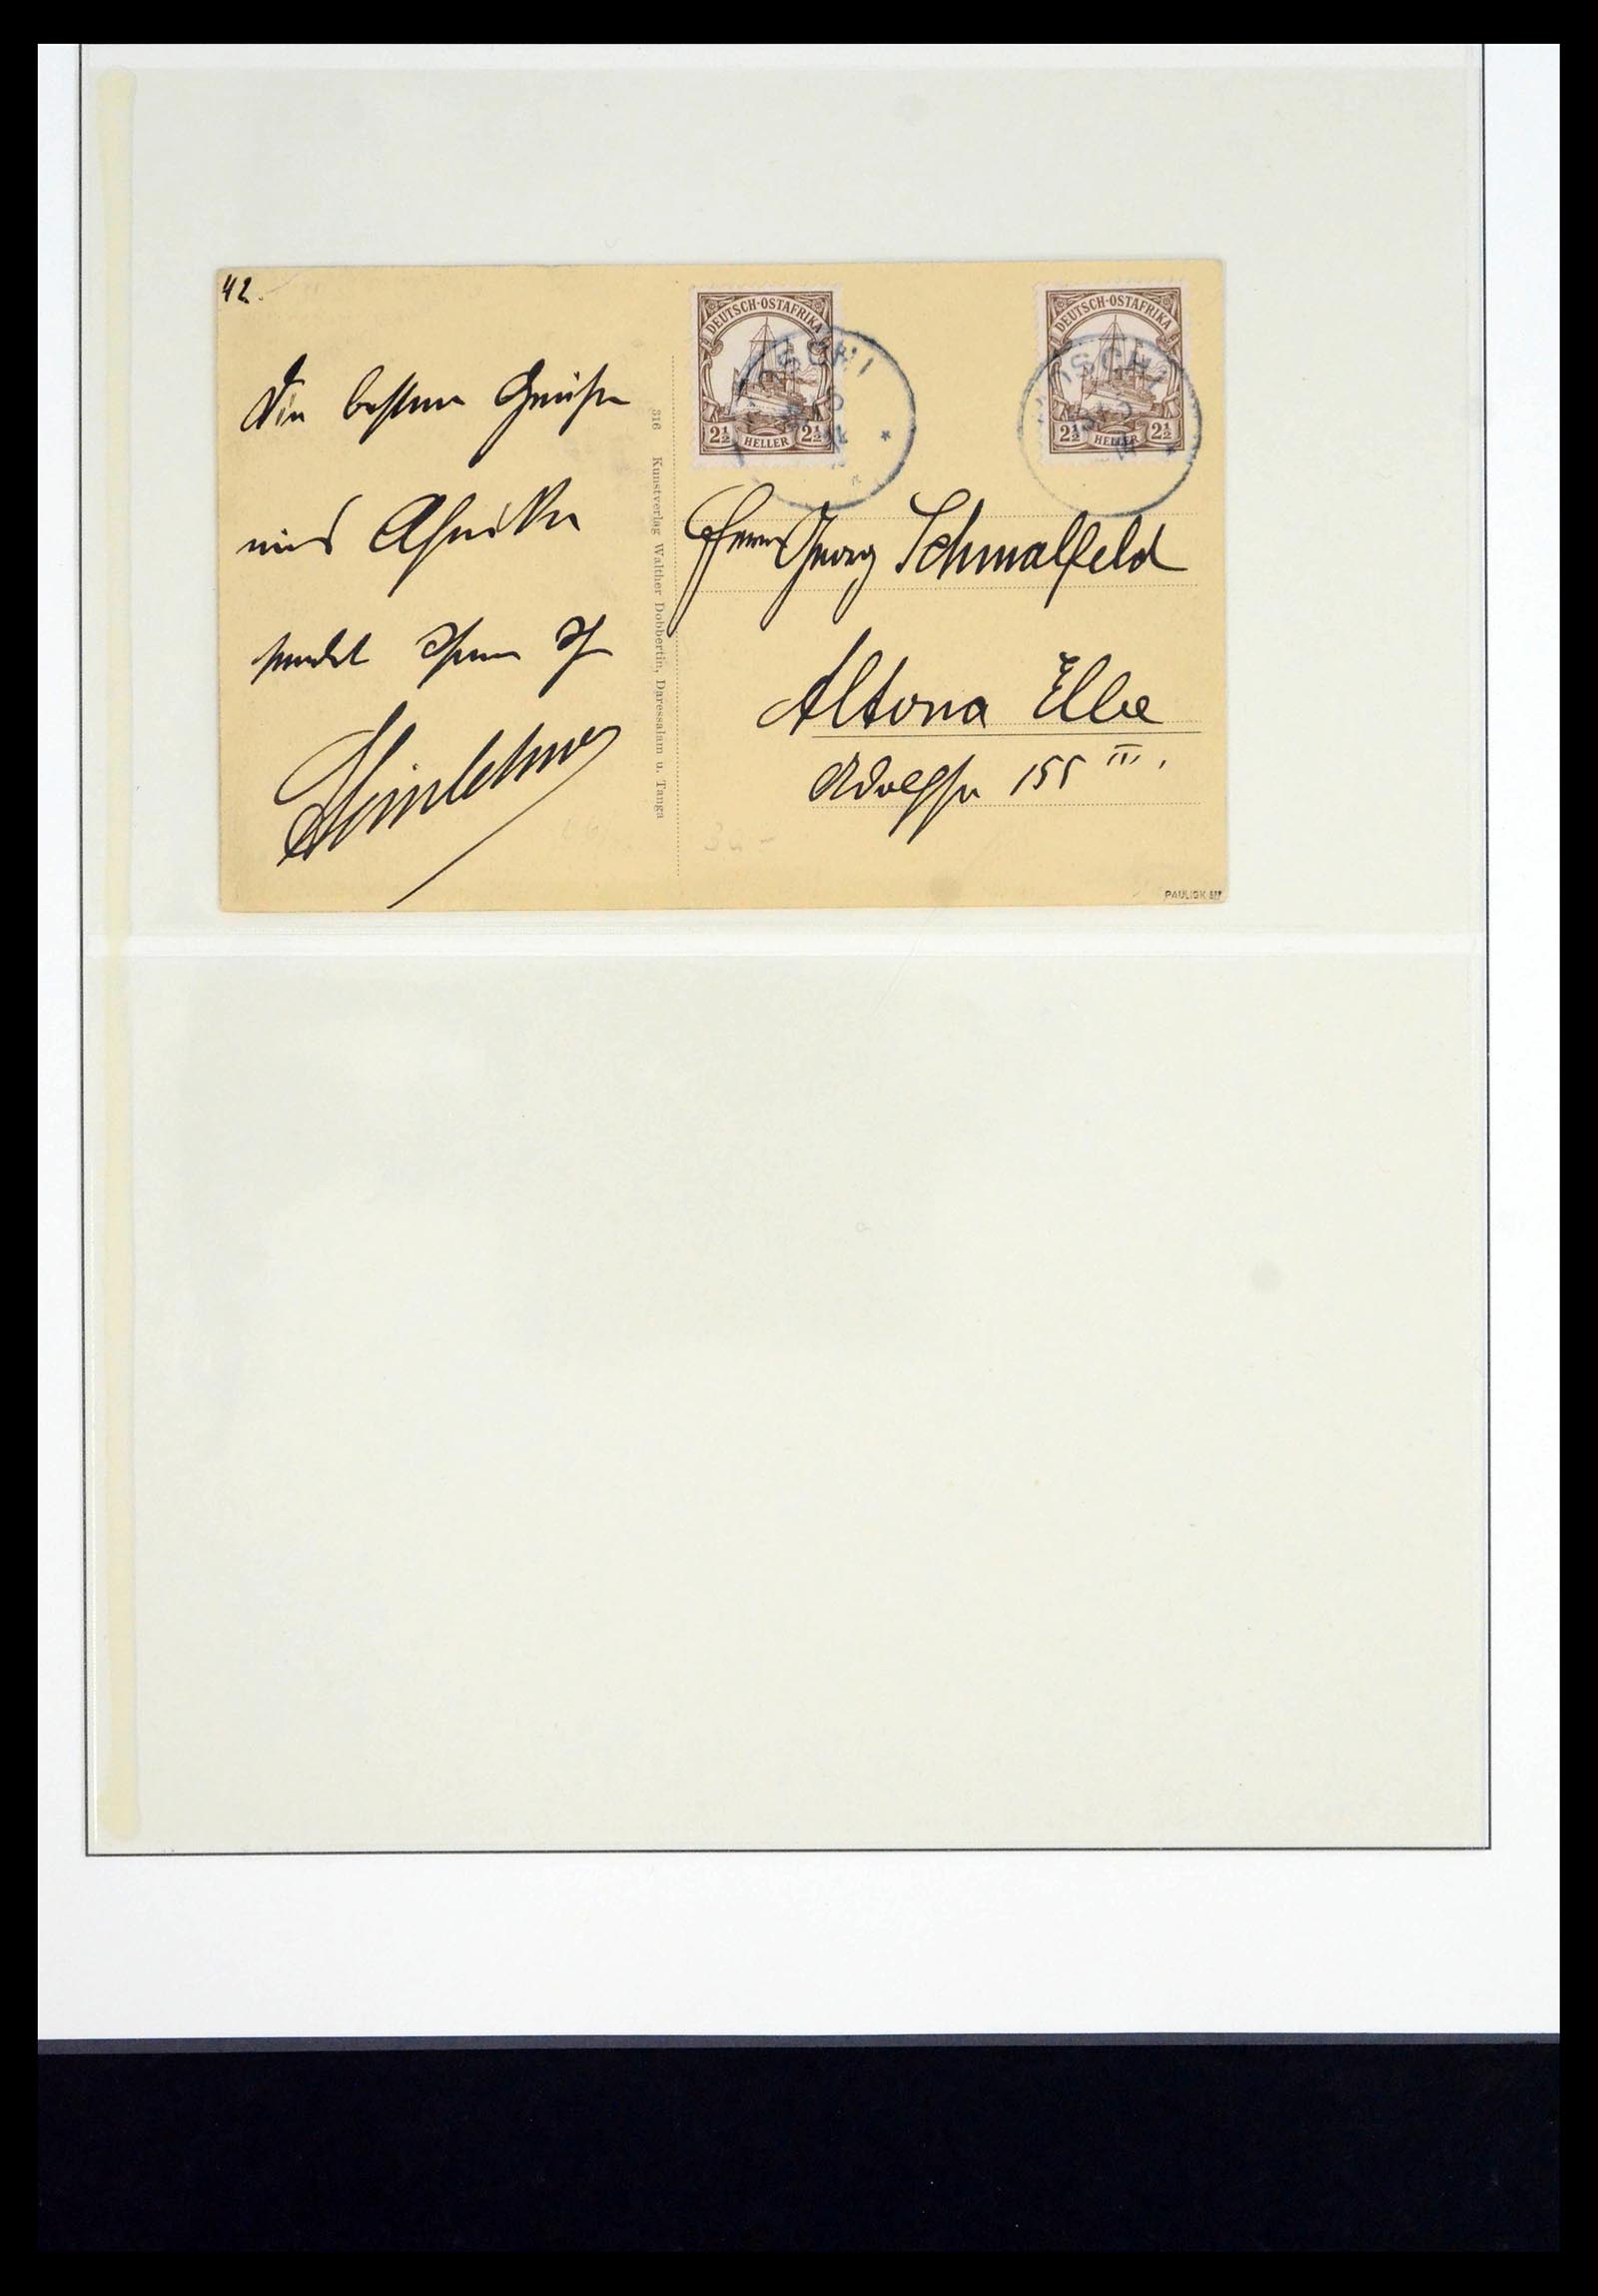 42.
Die besten Grüße
aus Afrika
sendet Ihnen Ihr
316 Kunstverlag Walther Dobbertin, Daressalam u. Tanga
DEUTSCH-OSTAFRIKA
2½ HELLER 2½
DEUTSCH-OSTAFRIKA
2½ HELLER 2½
Herrn Georg Schmalfeld
Altona Elbe
Adolfstr 155 III.